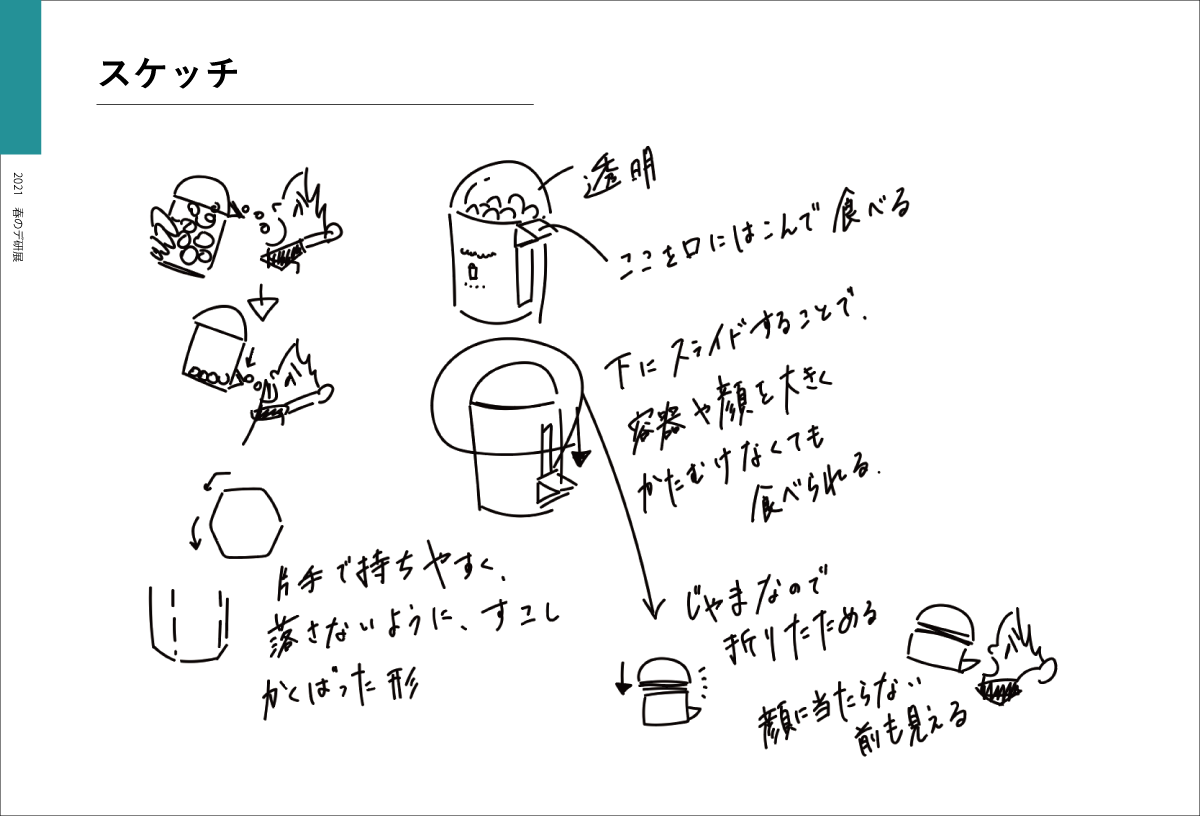 スケッチ
2021 春のデ研展
透明
ここを口にはこんで食べる
下にスライドすることで、
容器や顔を大きく
かたむけなくても
食べられる.
片手で持ちやすく、
落さないように、すこし
かくばった形
じゃまなので
折りたためる
顔に当たらない
前も見える